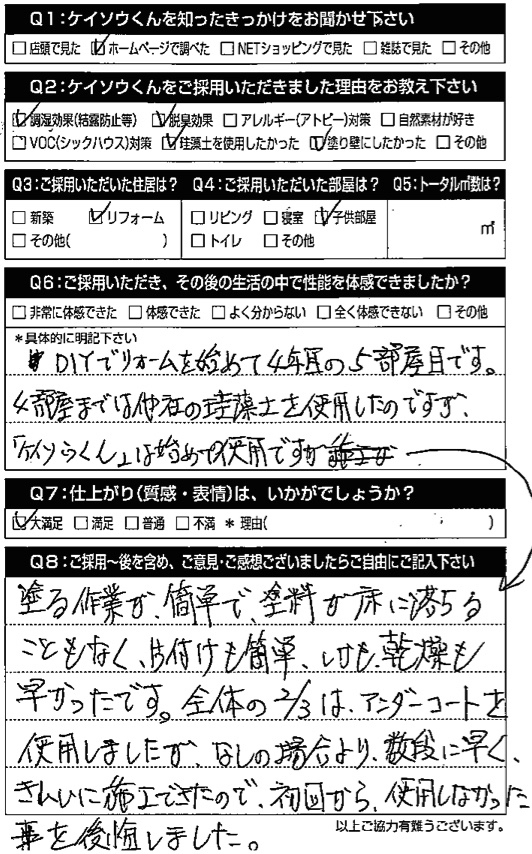 Q1:ケイソウくんを知ったきっかけをお聞かせ下さい
□店頭で見た ☑ホームページで調べた □NETショッピングで見た □雑誌で見た □その他
Q2:ケイソウくんをご採用いただきました理由をお教え下さい
☑調湿効果(結露防止等) ☑脱臭効果 □アレルギー(アトピー)対策 □自然素材が好き
□VOC(シックハウス)対策 ☑珪藻土を使用したかった ☑塗り壁にしたかった □その他
Q3:ご採用いただいた住居は? Q4:ご採用いただいた部屋は? Q5:トータル㎡数は?
□新築 ☑リフォーム □リビング □寝室 ☑子供部屋
□その他( ) □トイレ □その他 ㎡
Q6:ご採用いただき、その後の生活の中で性能を体感できましたか?
□非常に体感できた □体感できた □よく分からない □全く体感できない □その他
*具体的に明記下さい
DIYでリォームを始めて4年目の5部屋目です。
4部屋までは他社の珪藻土を使用したのですが、
「ケイソウくん」は始めての使用ですが
Q7:仕上がり(質感・表情)は、いかがでしょうか?
☑大満足 □満足 □普通 □不満 *理由( )
Q8:ご採用〜後を含め、ご意見・ご感想ございましたらご自由にご記入下さい
塗る作業が、簡単で、塗料が床に落ちる
こともなく、片付けも簡単、しかも、乾燥も
早かったです。全体の2/3は、アンダーコートを
使用しましたが、なしの場合より、数段に早く、
きれいに施工できたので、初回から、使用しなかった
事を後悔しました。
以上ご協力有難うございます。